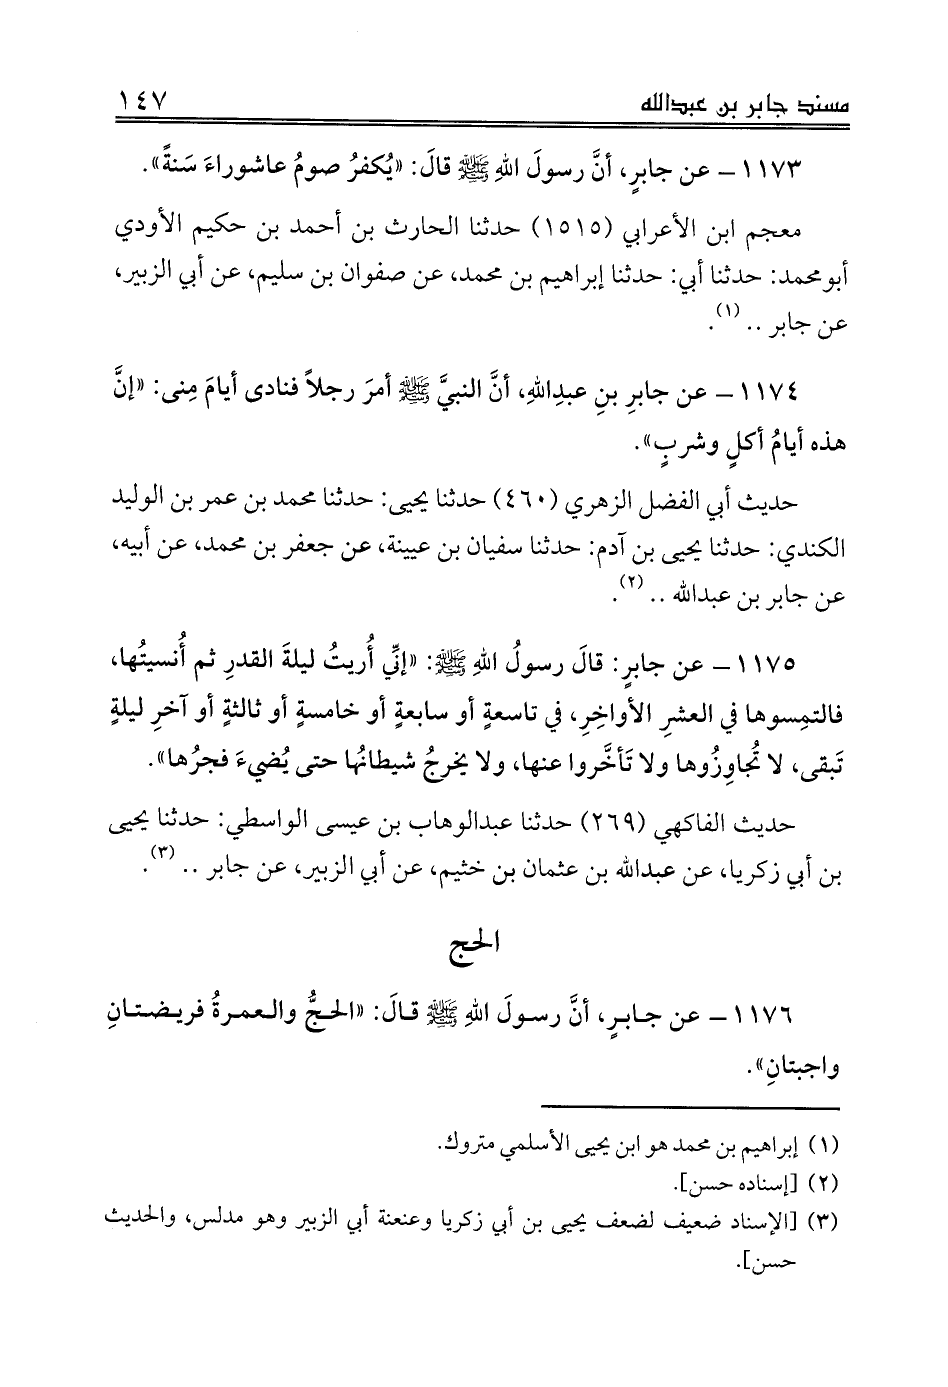 مسند جابر بن عبدالله ١٤٧
١١٧٣ – عن جابرٍ، أنَّ رسولَ اللهِ ﷺ قالَ: «يُكفرُ صومُ عاشوراءَ سَنةً».
معجم ابن الأعرابي (١٥١٥) حدثنا الحارث بن أحمد بن حكيم الأودي
أبو محمد: حدثنا أبي: حدثنا إبراهيم بن محمد، عن صفوان بن سليم، عن أبي الزبير،
عن جابر .. (١).
١١٧٤ – عن جابرِ بنِ عبدِاللهِ، أنَّ النبيَّ ﷺ أمرَ رجلاً فنادى أيامَ مِنى: «إنَّ
هذه أيامُ أكلٍ وشربٍ».
حديث أبي الفضل الزهري (٤٦٠) حدثنا يحيى: حدثنا محمد بن عمر بن الوليد
الكندي: حدثنا يحيى بن آدم: حدثنا سفيان بن عيينة، عن جعفر بن محمد، عن أبيه،
عن جابر بن عبدالله .. (٢).
١١٧٥ – عن جابرٍ: قالَ رسولُ اللهِ ﷺ: «إنِّي أُريتُ ليلةَ القدرِ ثم أُنسيتُها،
فالتمِسوها في العشرِ الأواخِرِ، في تاسعةٍ أو سابعةٍ أو خامسةٍ أو ثالثةٍ أو آخرِ ليلةٍ
تَبقى، لا تُجاوِزُوها ولا تَأخَّروا عنها، ولا يخرجُ شيطانُها حتى يُضيءَ فجرُها».
حديث الفاكهي (٢٦٩) حدثنا عبدالوهاب بن عيسى الواسطي: حدثنا يحيى
بن أبي زكريا، عن عبدالله بن عثمان بن خثيم، عن أبي الزبير، عن جابر .. (٣).
الحج
١١٧٦ – عن جابرٍ، أنَّ رسولَ اللهِ ﷺ قالَ: «الحجُّ والعمرةُ فريضتانِ
واجبتانِ».
(١) إبراهيم بن محمد هو ابن يحيى الأسلمي متروك.
(٢) [إسناده حسن].
(٣) [الإسناد ضعيف لضعف يحيى بن أبي زكريا وعنعنة أبي الزبير وهو مدلس، والحديث
حسن].